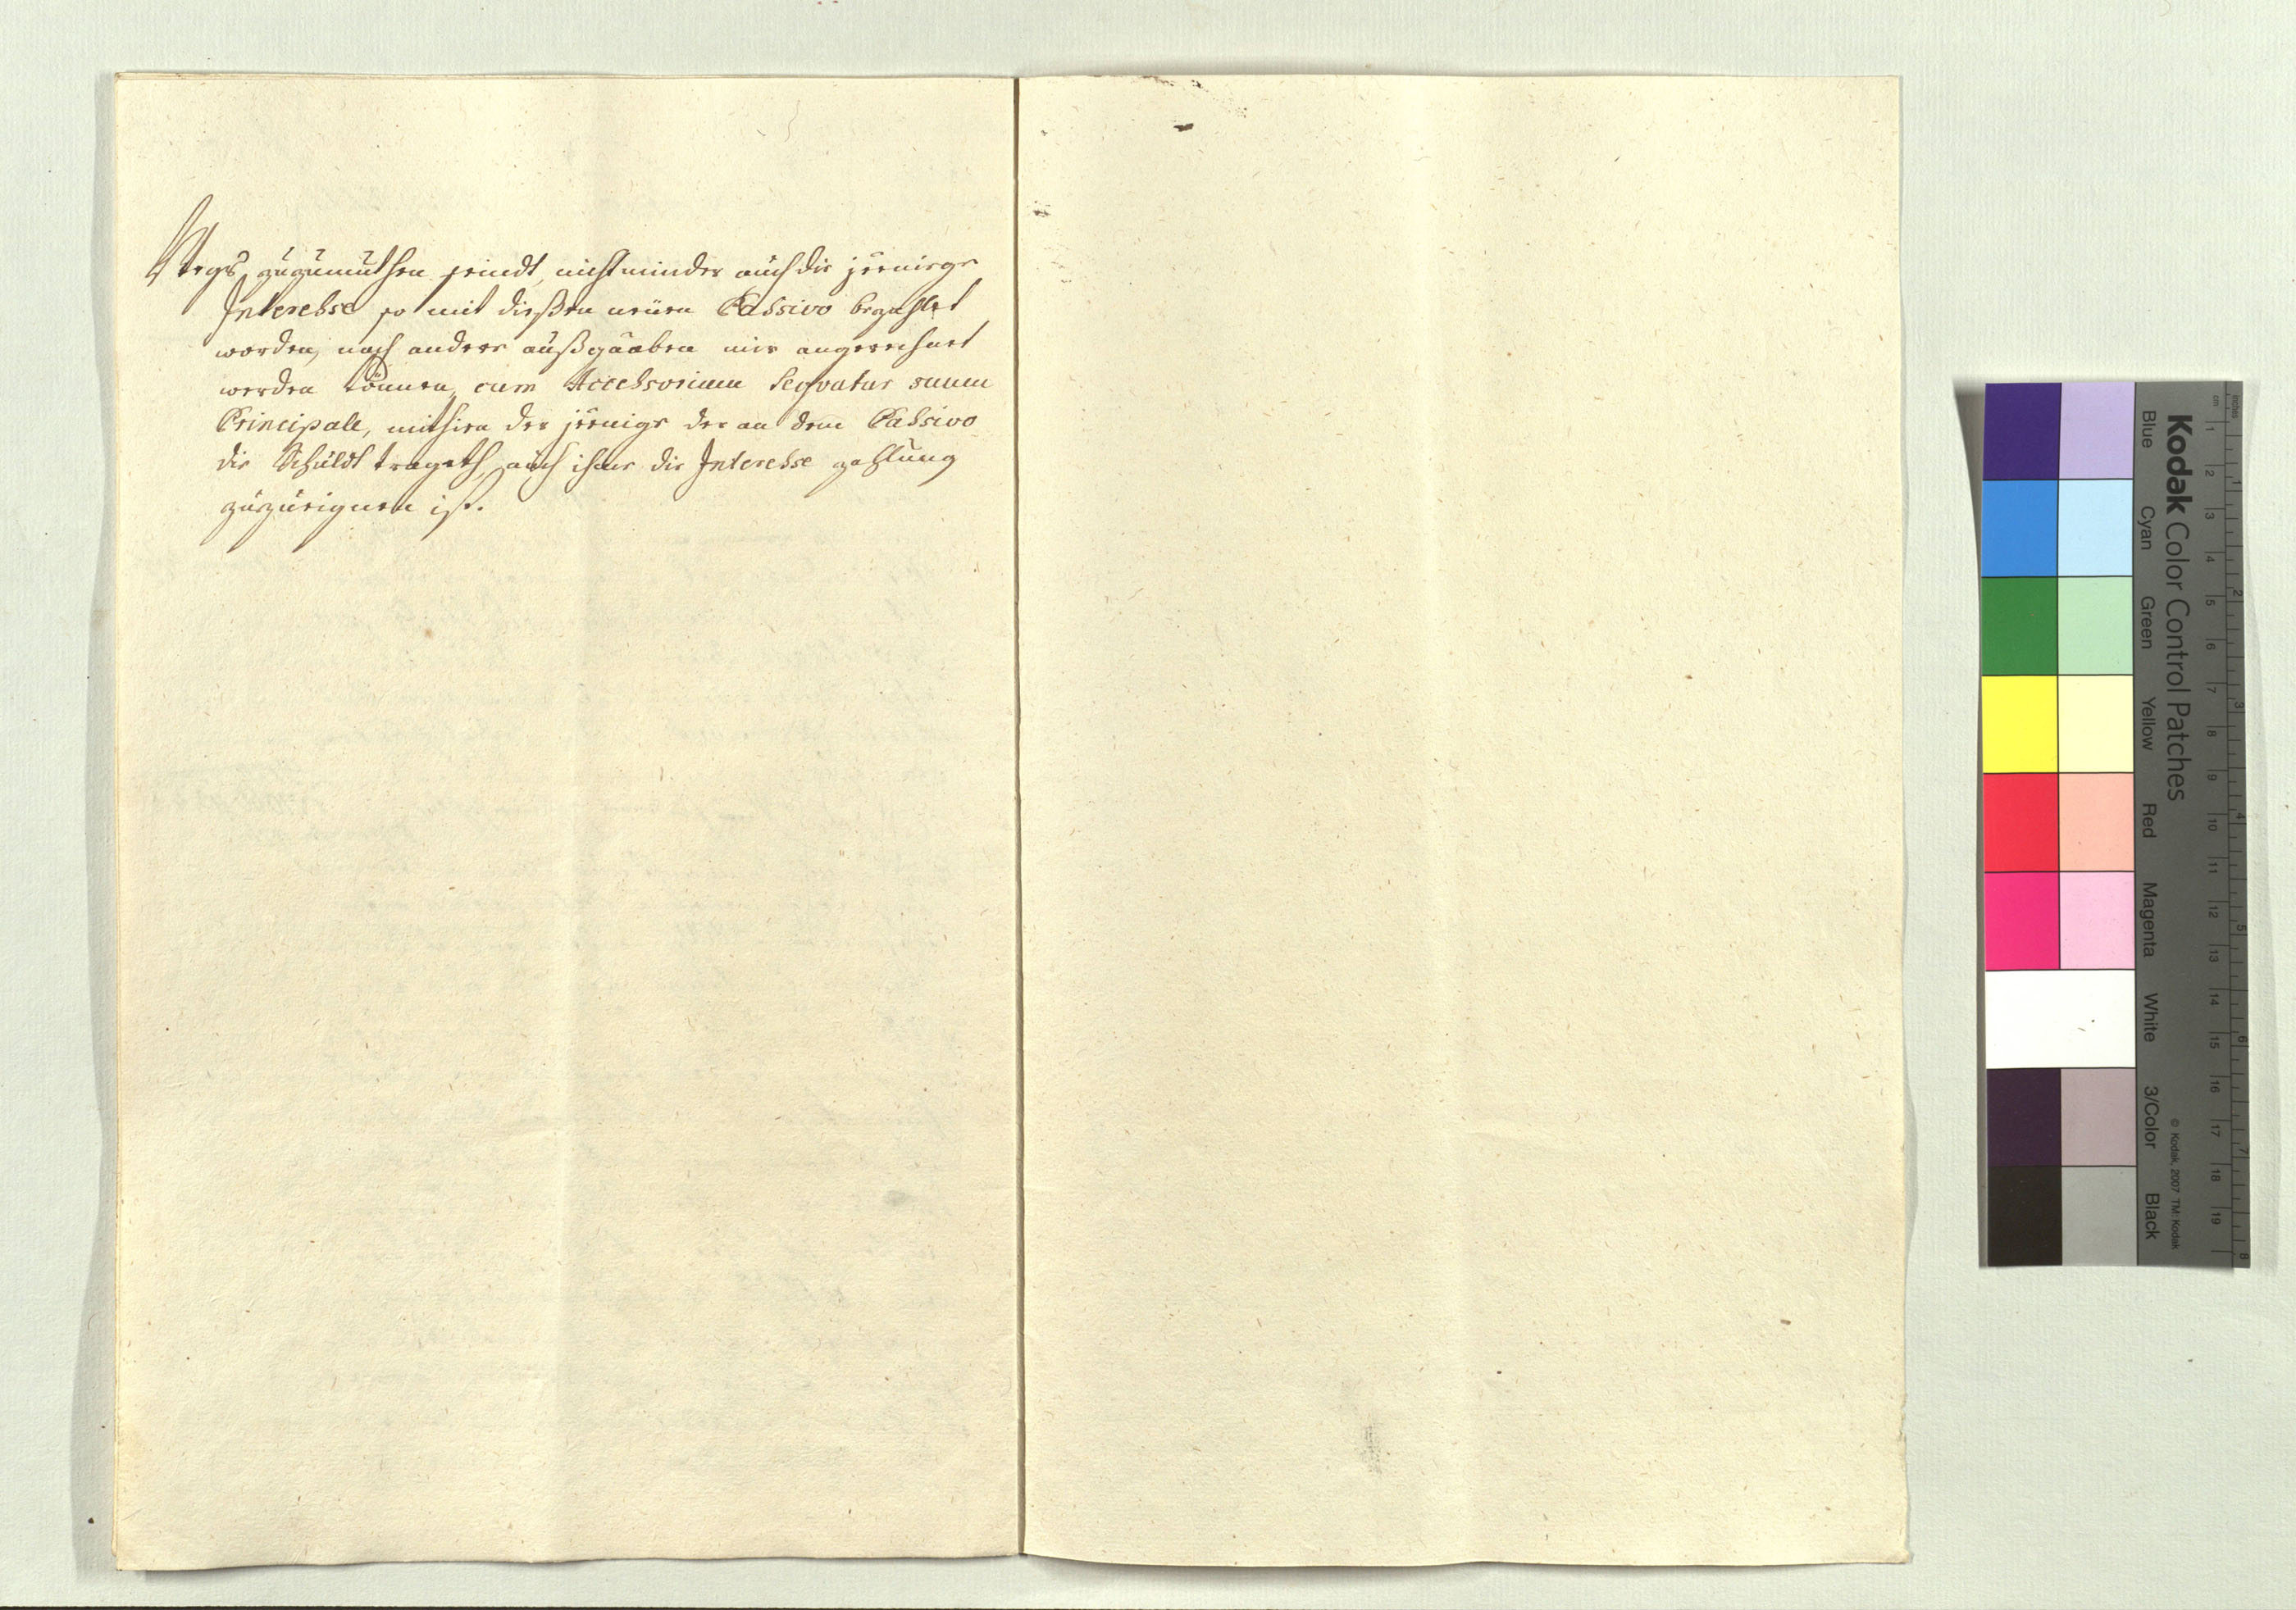 Weegs zuzumuthen seindt, nicht minder auch die jeenige
Interesse so mit dießen neüen Passivo bezahlet
worden, noch andere außgaaben mir angerechnet
werden können, cum Accessorium sequatur suum
Principale, mithien der jeenige der an dem Passivo
die Schuldt trageth, auch ihme die Interesse zahlung
zuzueignen ist.
Kodak Color Control Patches
Blue Cyan Green Yellow Red Magenta White 3/Color Black
© Kodak, 2007 TM: Kodak
inches 1 2 3 4 5 6 7 8
cm 1 2 3 4 5 6 7 8 9 10 11 12 13 14 15 16 17 18 19